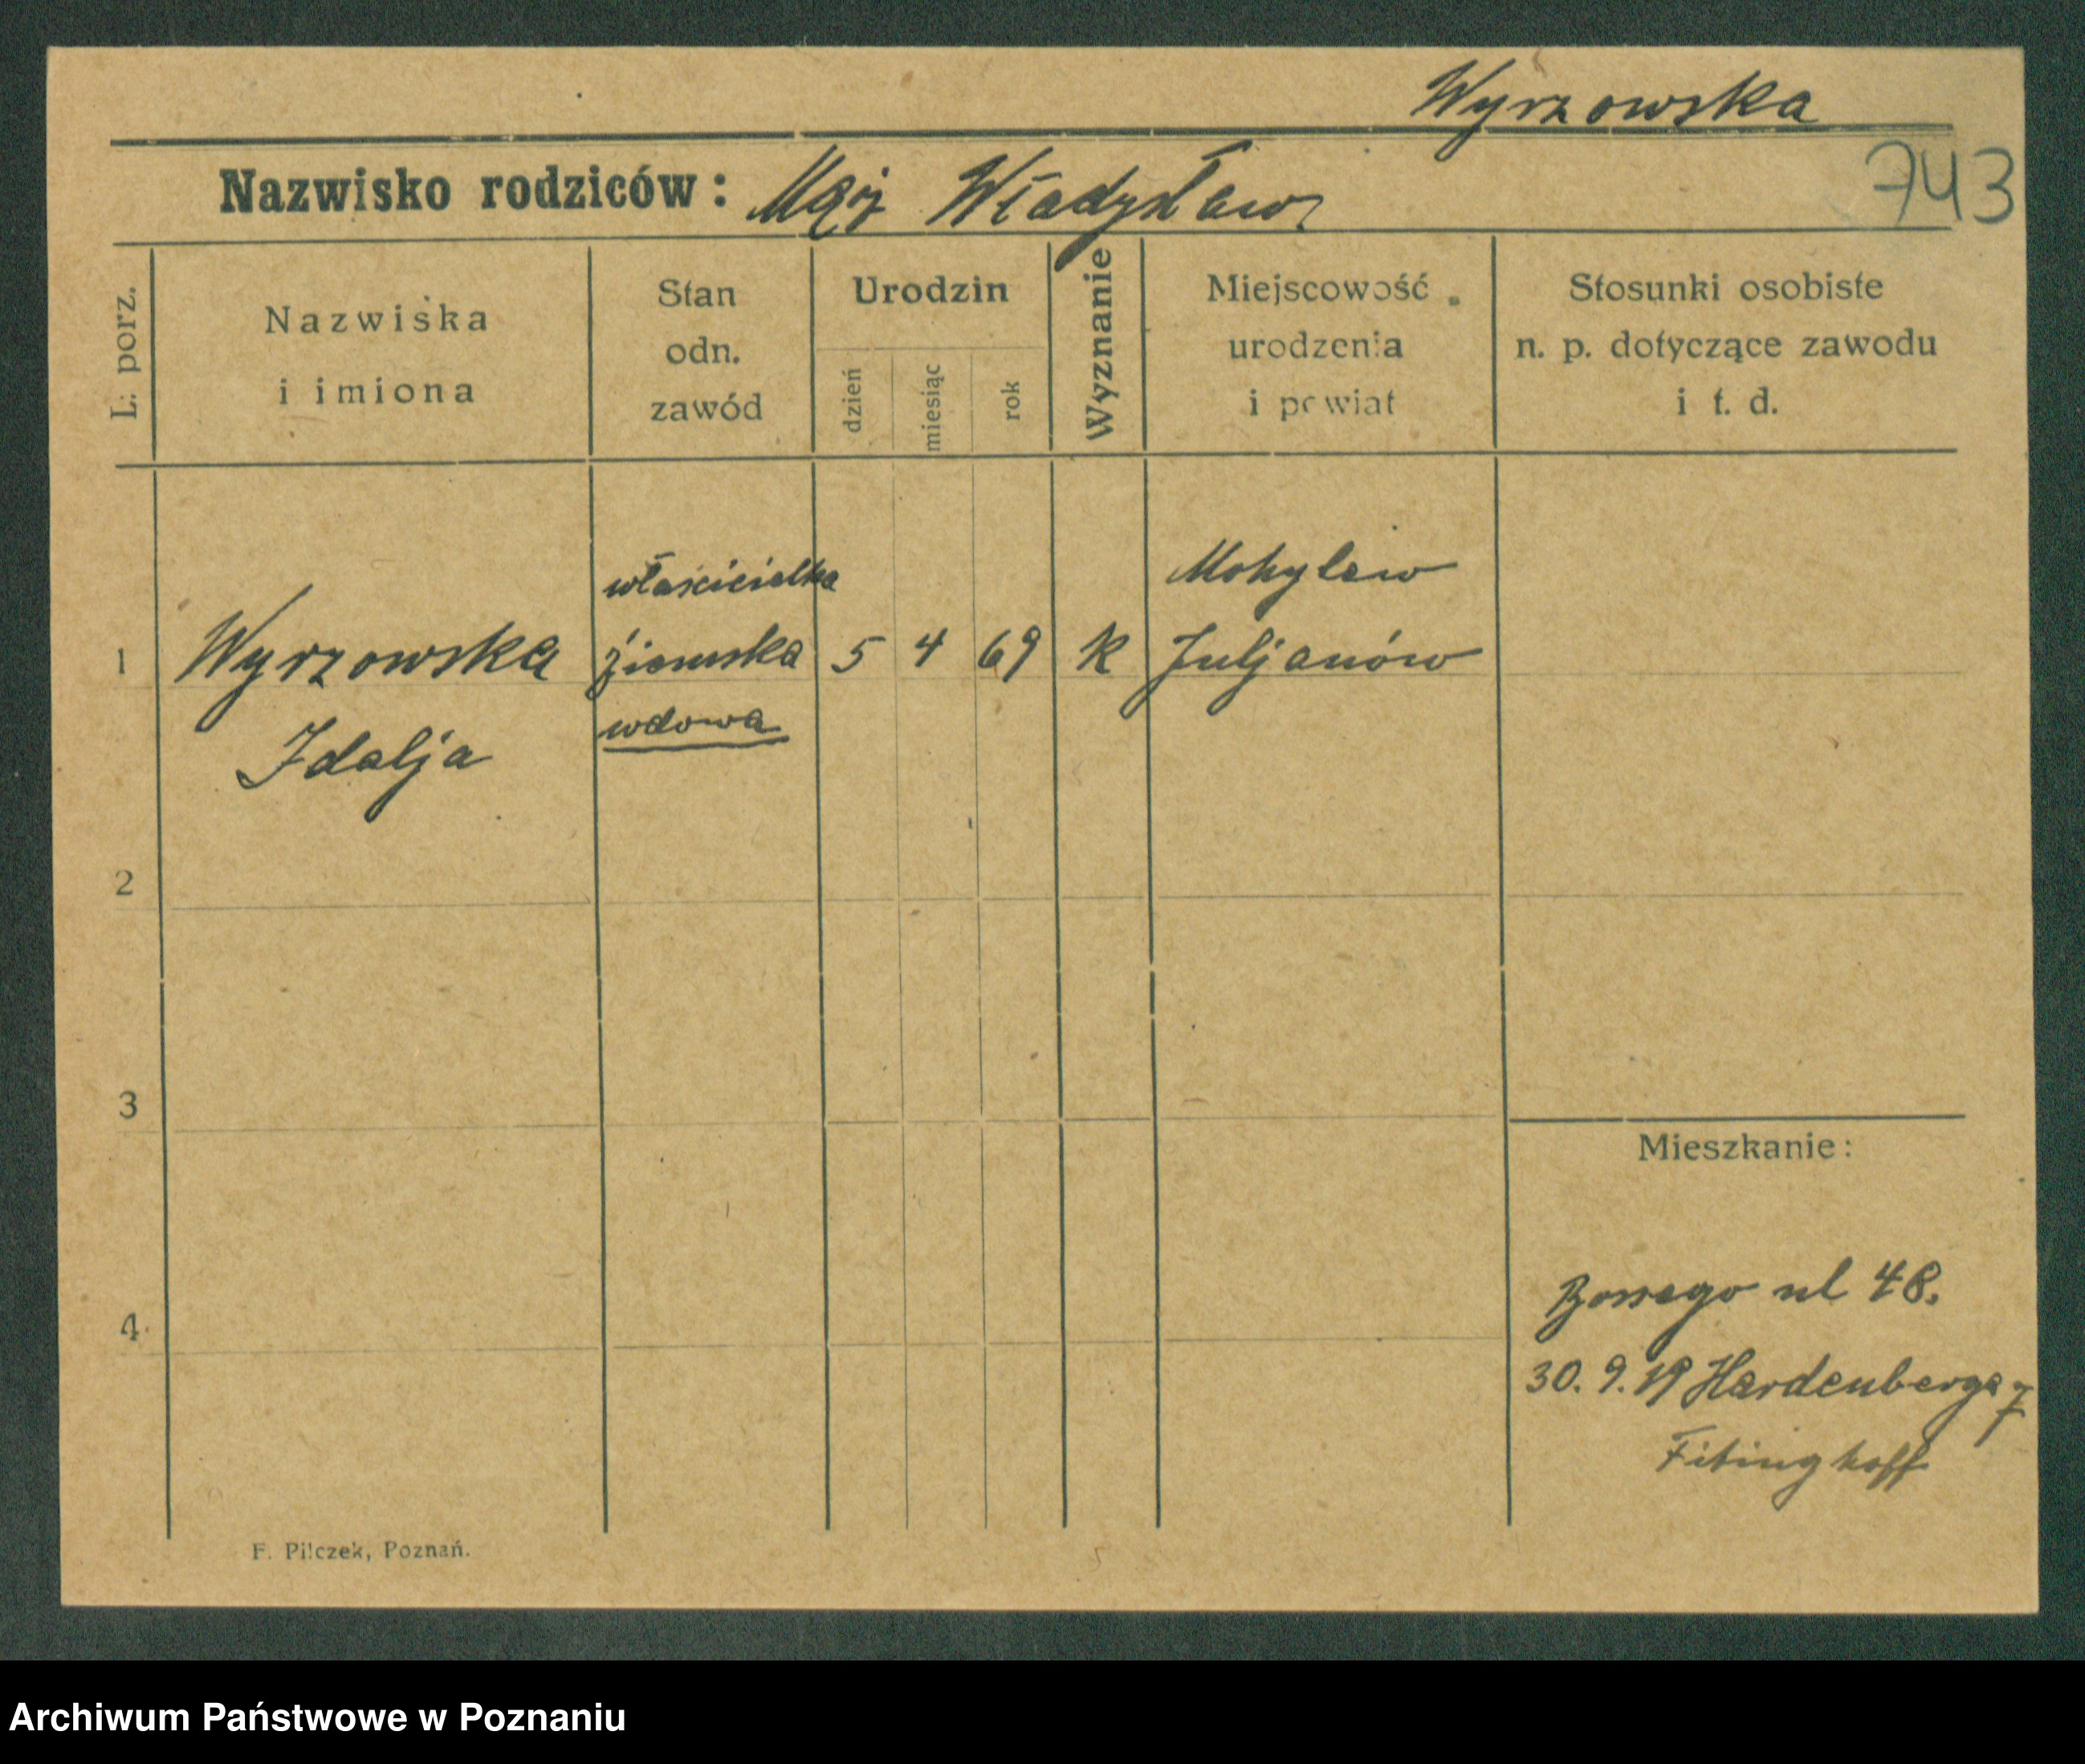 Wyrzowska
743
Nazwisko rodziców: Mąż Władysław
L: porz.
Nazwiska
i imiona
Stan
odn.
zawód
Urodzin
dzień
miesiąc
rok
Wyznanie
Miejscowość
urodzenia
i powiat
Stosunki osobiste
n. p. dotyczące zawodu
i t. d.
1
Wyrzowska
Idalja
właścicielka
ziemska
wdowa
5
4
69
K
Mohylew
Juljanów
2
3
4
Mieszkanie:
ul 48.
30. 9. 19 Hardenberga 7
Fitinghoff
F. Pilczek, Poznań.
Archiwum Państwowe w Poznaniu